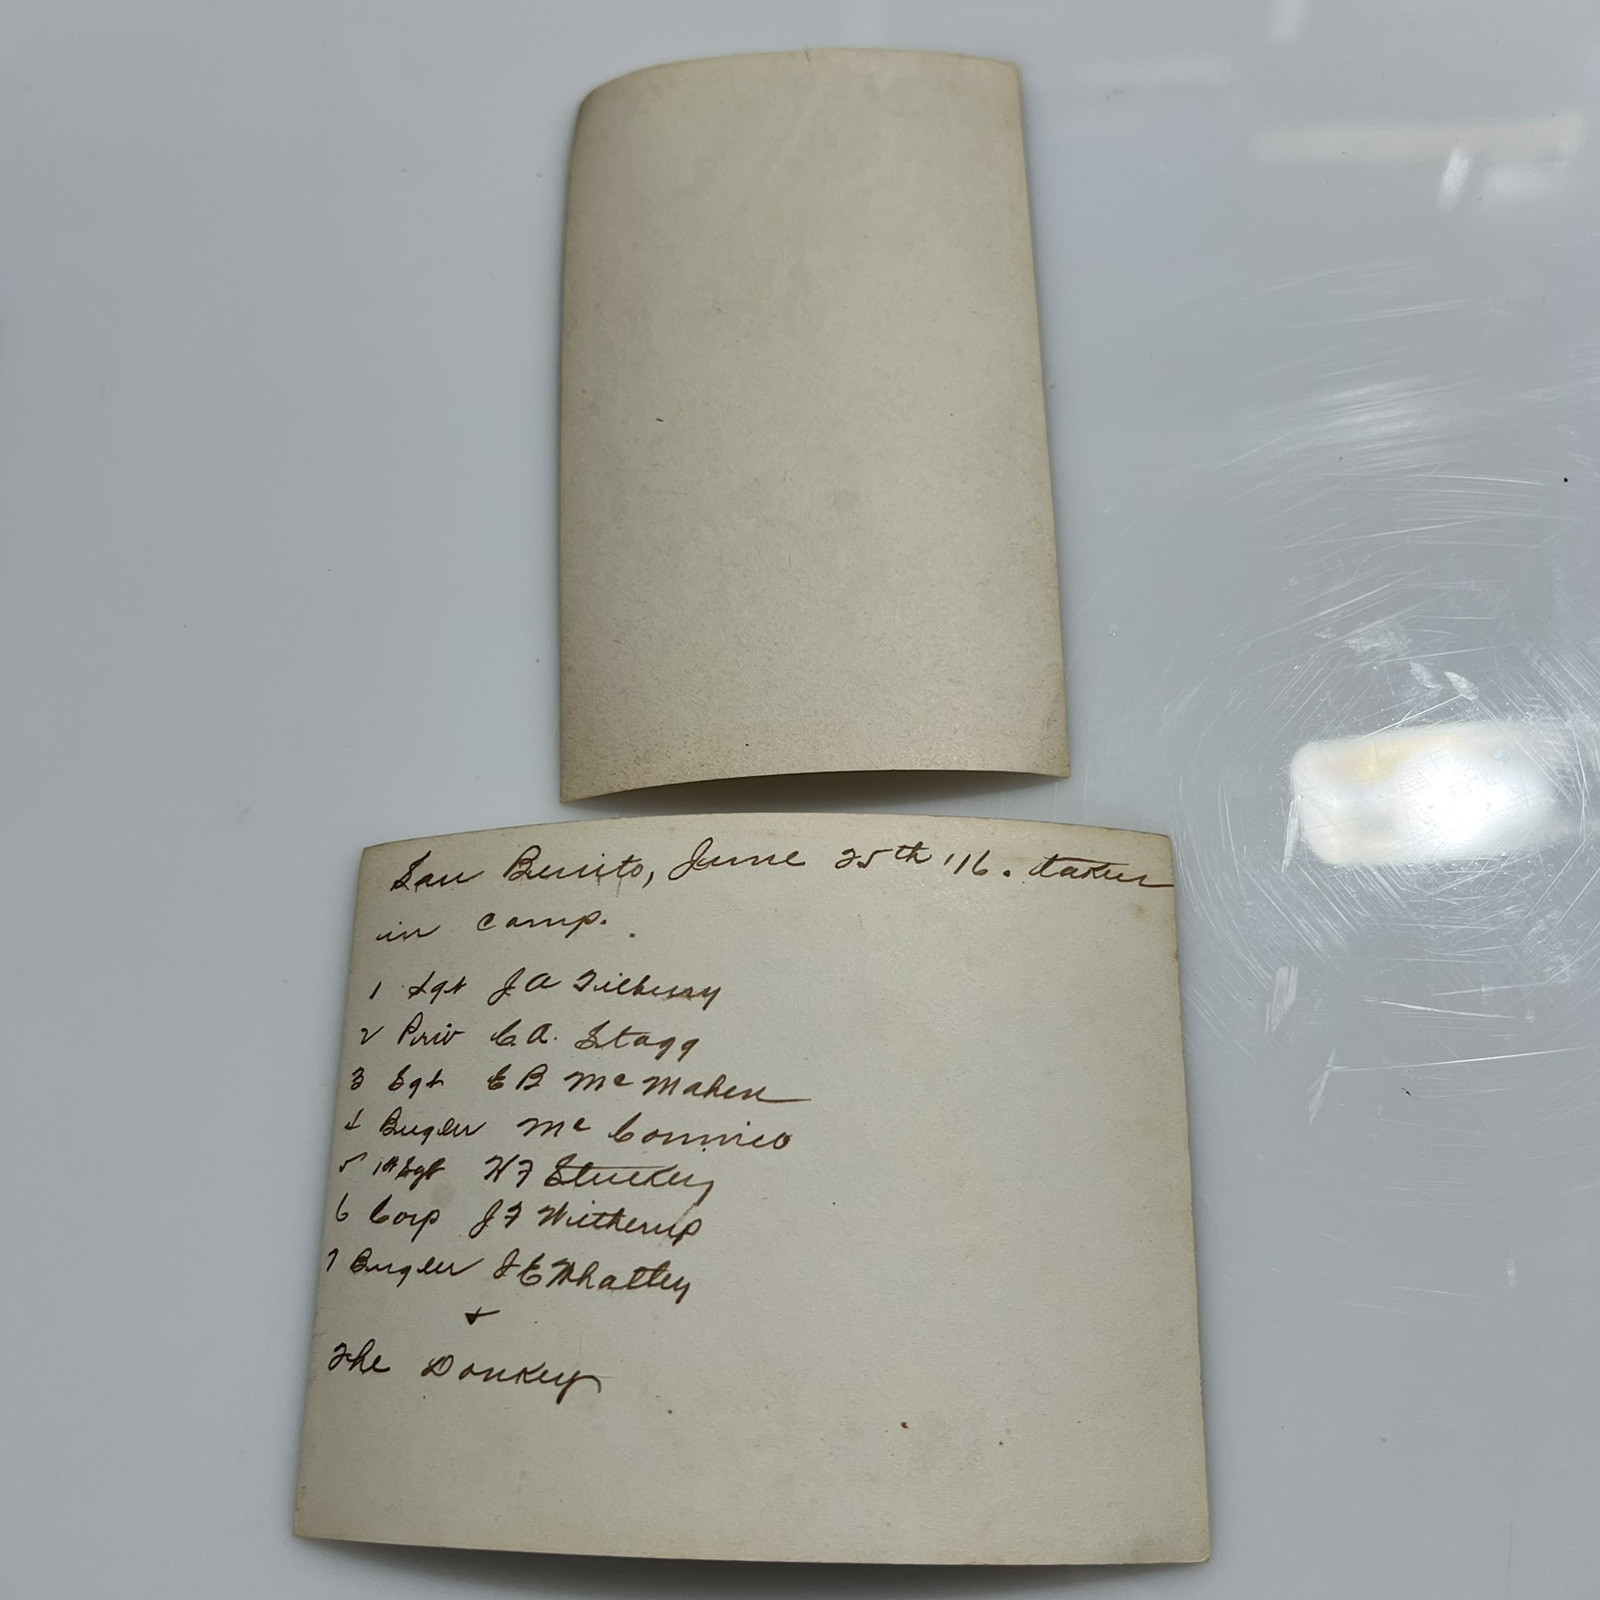 San Benito, June 25th '16. taken
in camp.
1 Sgt J A Tilberry
2 Priv C. A. Stagg
3 Sgt E B McMahen
4 Bugler McConnico
5 1st Sgt W F Stuckey
6 Corp J F Witherup
7 Bugler J E Whatley
+
The Donkey